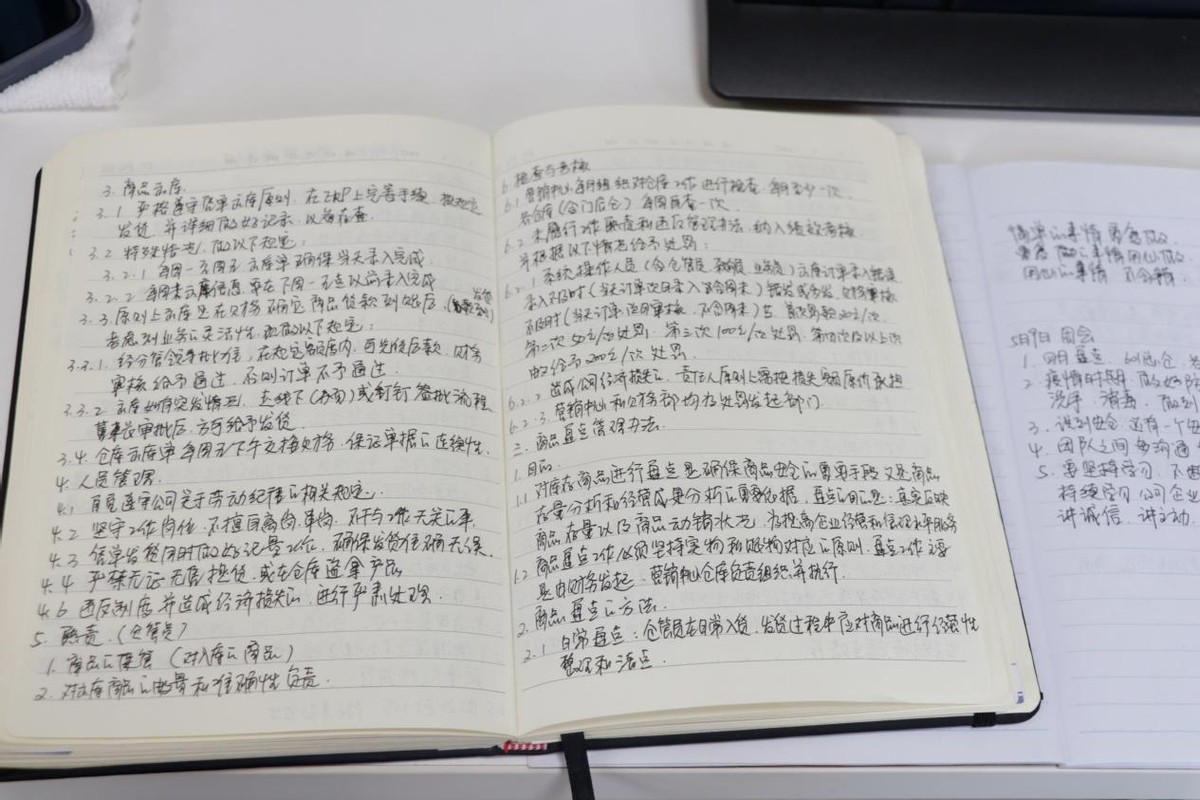 3. 商品出库
3.1 严格遵守凭单出库原则，在ERP上完善手续，按规定
发货，并详细做好记录，以备存查。
3.2 特殊情况，做以下规定：
3.2.1 每周一至周五出库单确保当天录入完成
3.2.2 每周末出库信息，要在下周一 录入完成
3.3 原则上出库是在财务确定商品货款到账后，
考虑到业务的灵活性，现做以下规定：
3.3.1. 经分管领导批准，在规定额度内，可先货后款，财务
审核给予通过，否则订单不予通过。
3.3.2 出库如有突发情况，走线下（书面）或钉钉签批流程
董事长审批后，方可给予发货。
3.4. 仓库出库单每周五下午交接财务，保证单据的连续性。
4. 人员管理
4.1 自觉遵守公司关于劳动纪律的相关规定。
4.2 坚守工作岗位，不擅自离岗、串岗，不干与工作无关的事。
4.3 凭单发货同时做好记录工作，确保发货准确无误。
4.4 严禁无证无店提货，或在仓库逗拿产品
4.6 违反制度并造成经济损失的，进行严肃处理。
5. 职责（仓管员）
1. 商品的保管（对入库的商品）
2. 对出库商品的数量和准确性负责。
6. 检查与考核
6.1 营销中心每月组织对仓库工作进行检查，每月至少一次
各仓库（含门店仓）每周自查一次。
6.2 未履行工作职责和违反管理办法，纳入绩效考核
并根据以下情况给予处罚：
6.2.1 系统操作人员（含仓管员、 业务员）出库订单录入错误
录入不及时（当天订单次日录入，不含周末）错发或多发，财务审核
不及时（当天订单次日审核，不含周末）
第二次50元/次处罚，第三次100元/次处罚，第四次及以上次
均给予200元/次处罚。
6.2.2 造成公司经济损失的，责任人原则上需按损失 原价承担
6.2.3. 营销中心和财务部均为处罚发起部门。
三. 商品盘点管理办法。
1. 目的
1.1 对库存商品进行盘点是确保商品安全的重要手段，又是商品
存量分析和经营成果分析的重要依据，盘点的目的是：真实反映
商品存量以及商品动销状况，为提高企业经营和管理水平服务
1.2 商品盘点工作必须坚持实物和账物对应的原则，盘点工作主要
是由财务发起，营销中心仓库负责组织并执行。
2. 商品盘点的方法。
2.1 日常盘点：仓管员在日常入货、发货过程中应对商品进行经常性
整理和清点。
简单的事情重复做
重复的事情用心做
用心的事情
5月9日 周会
1. 四月盘点
2. 疫情时期，做好防
洗手，消毒，做到
3.
4. 团队之间要沟通
5. 要坚持学习，不断
持续学习，公司企业
讲诚信，讲主动，